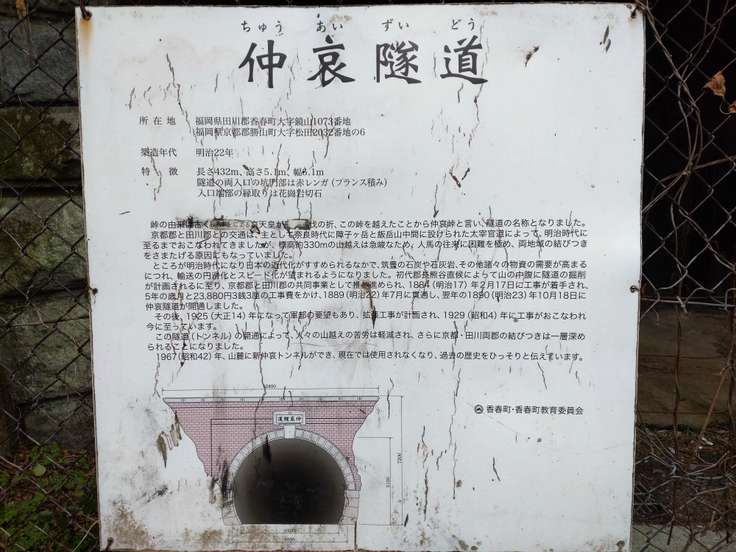 ちゅう あい ずい どう
仲哀隧道
所在地 福岡県田川郡香春町大字鏡山1073番地
福岡県京都郡勝山町大字松田2032番地の6
築造年代 明治22年
特徴 長さ432m、高さ5.1m、幅5.1m
隧道の両入口の坑門部は赤レンガ(フランス積み)
入口端部の縁取りは花崗岩切石
峠の由来は古く 哀天皇が 伐の折、この峠を越えたことから仲哀峠と言い、隧道の名称となりました。
京都郡と田川郡との交通は、主として奈良時代に障子ヶ岳と飯岳山中間に設けられた太宰官道によって、明治時代に
至るまでおこなわれてきましたが、標高約330mの山越えは急峻なため、人馬の往来に困難を極め、両地域の結びつき
をさまたげる原因にもなっていました。
ところが明治時代になり日本の近代化がすすめられるなかで、筑豊の石炭や石灰岩、その他諸々の物資の需要が高まる
につれ、輸送の円滑化とスピード化が望まれるようになりました。初代郡長熊谷直候によって山の中腹に隧道の掘削
が計画されるに至り、京都郡と田川郡の共同事業として推し進められ、1884(明治17)年2月17日に工事が着手され、
5年の歳月と23,880円3銭3厘の工事費をかけ、1889(明治22)年7月に貫通し、翌年の1890(明治23)年10月18日に
仲哀隧道が開通しました。
その後、1925(大正14)年になって軍部の要望もあり、拡張工事が計画され、1929(昭和4)年に工事がおこなわれ
今に至っています。
この隧道(トンネル)の開通によって、人々の山越えの苦労は軽減され、さらに京都・田川両郡の結びつきは一層深め
られることになりました。
1967(昭和42)年、山麓に新仲哀トンネルができ、現在では使用されなくなり、過去の歴史をひっそりと伝えています。
香春町・香春町教育委員会
道隧哀仲